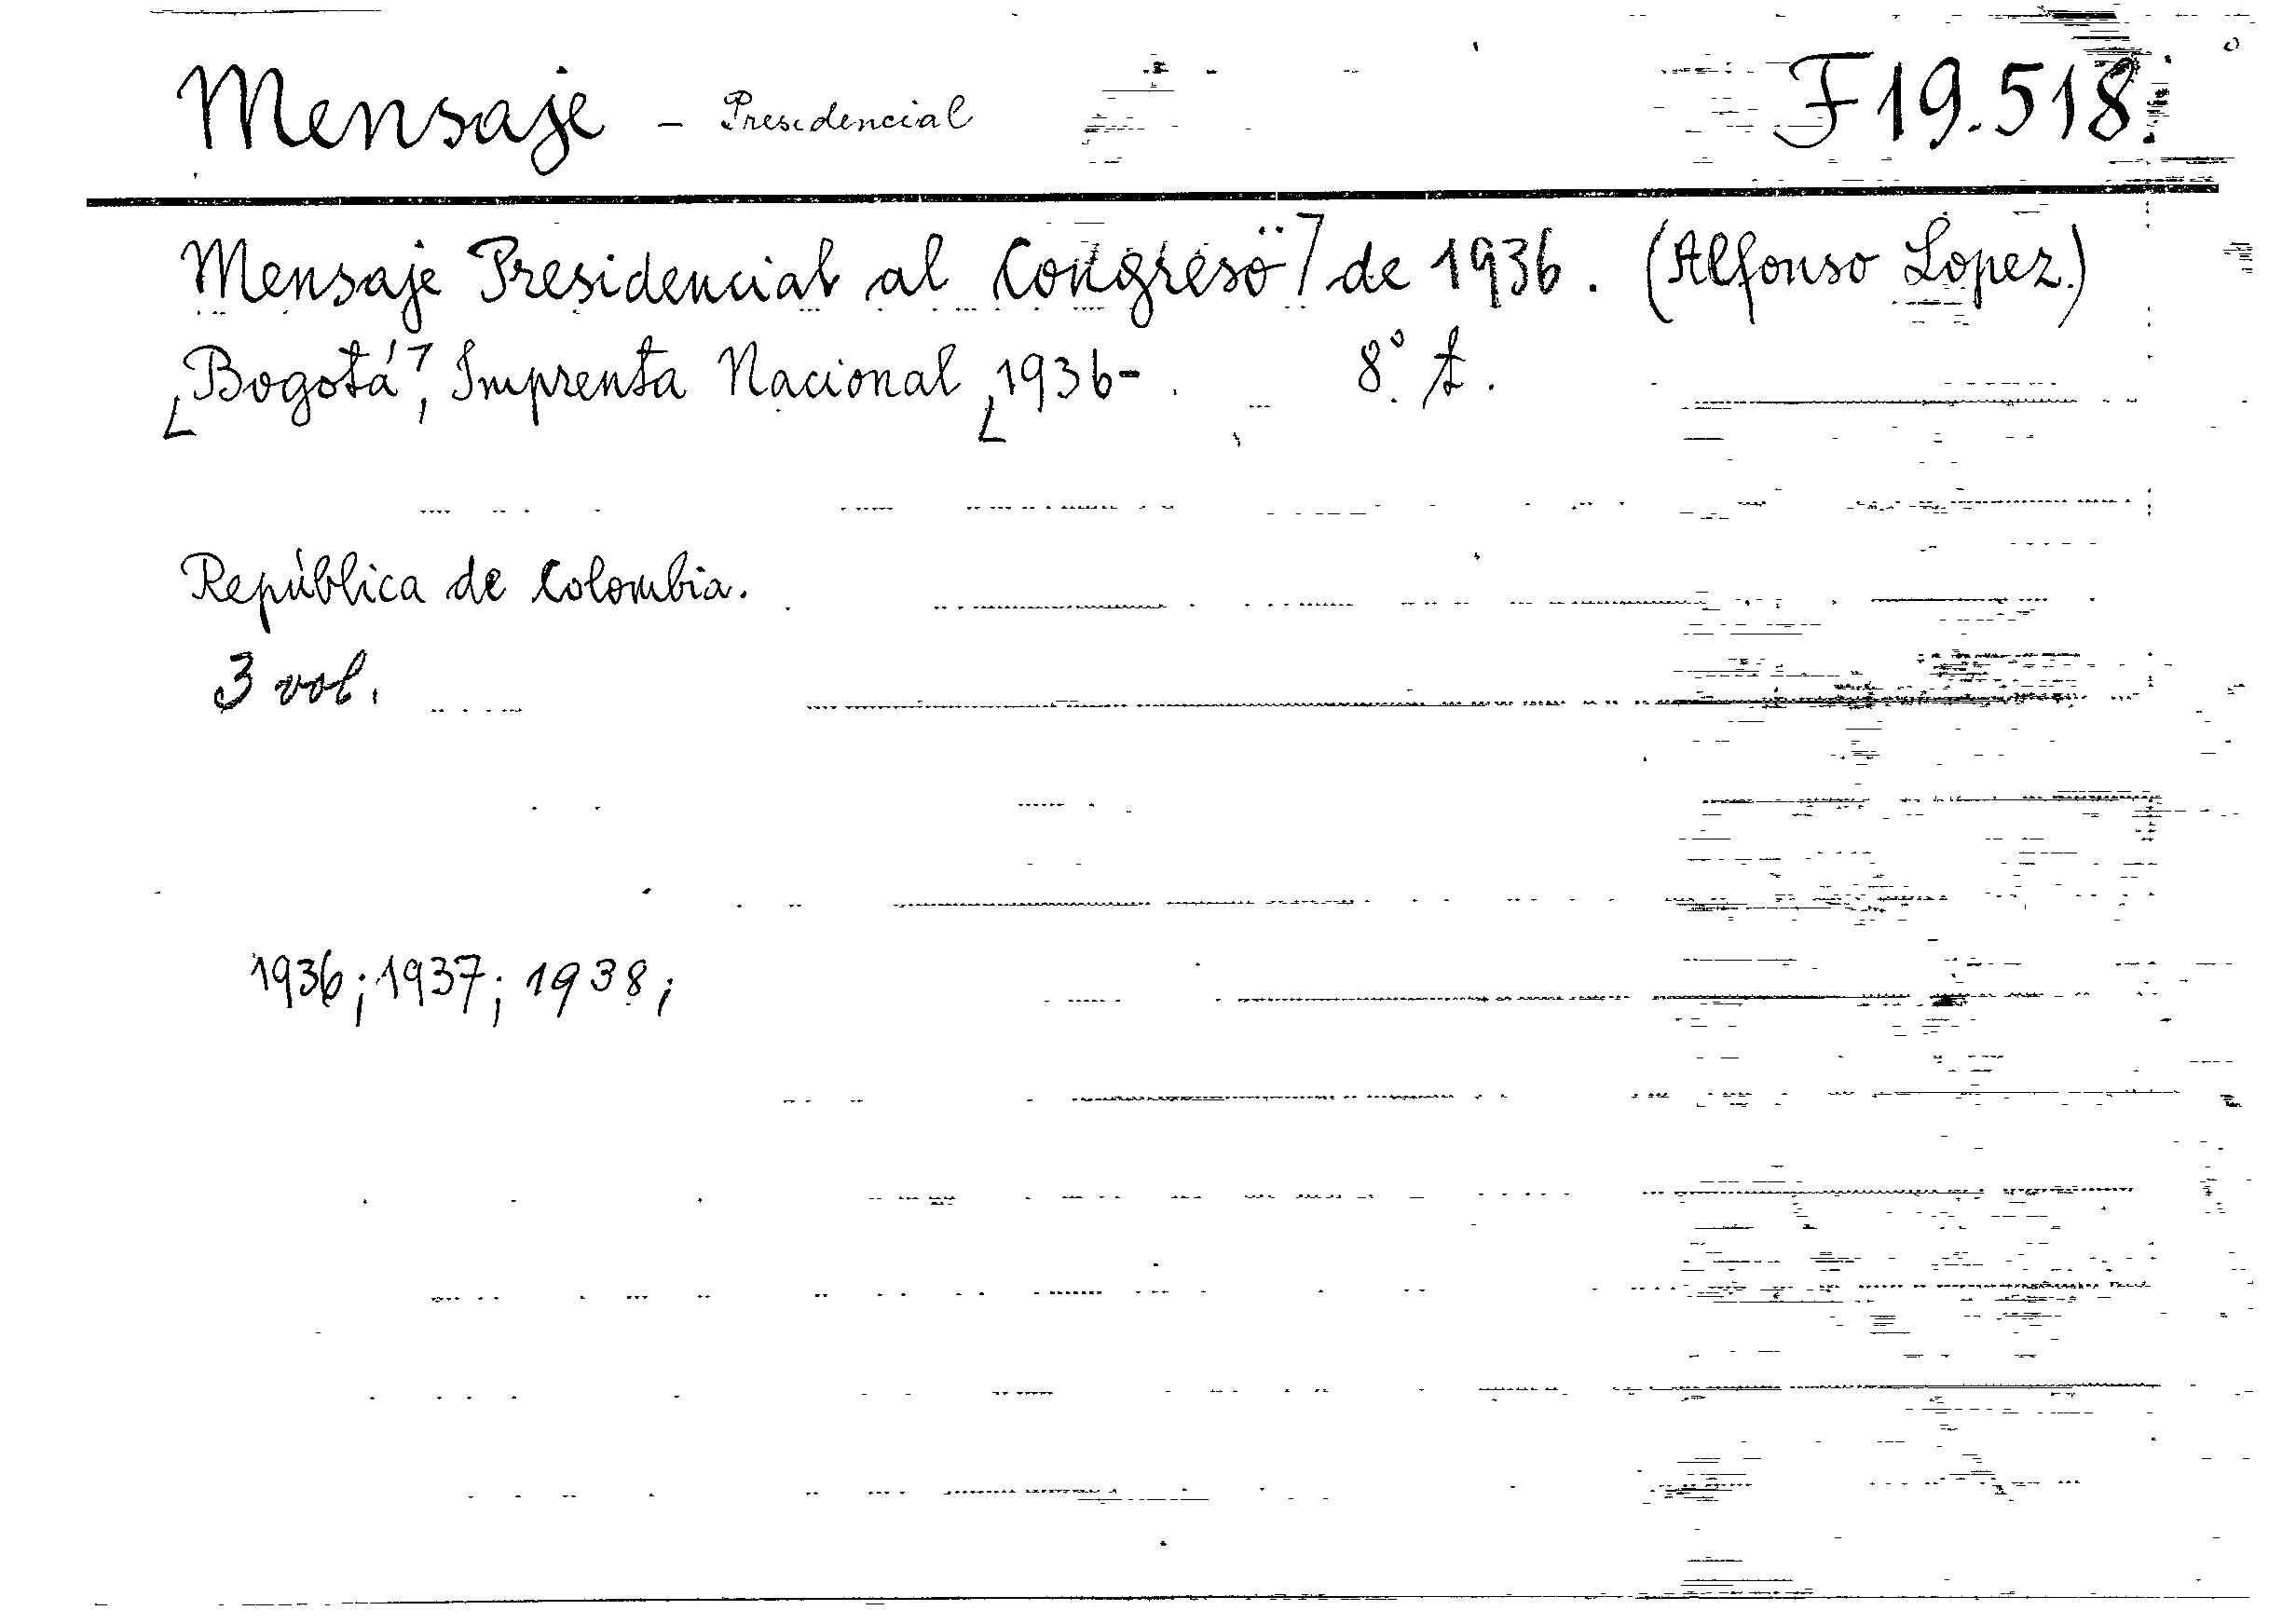 Mensaje - Presidencial F 19.518
Mensaje Presidencial al Congreso] de 1936. (Alfonso Lopez.)
[Bogotá], Imprenta Nacional [1936- 8° t.
República de Colombia.
3 vol.
1936; 1937; 1938;